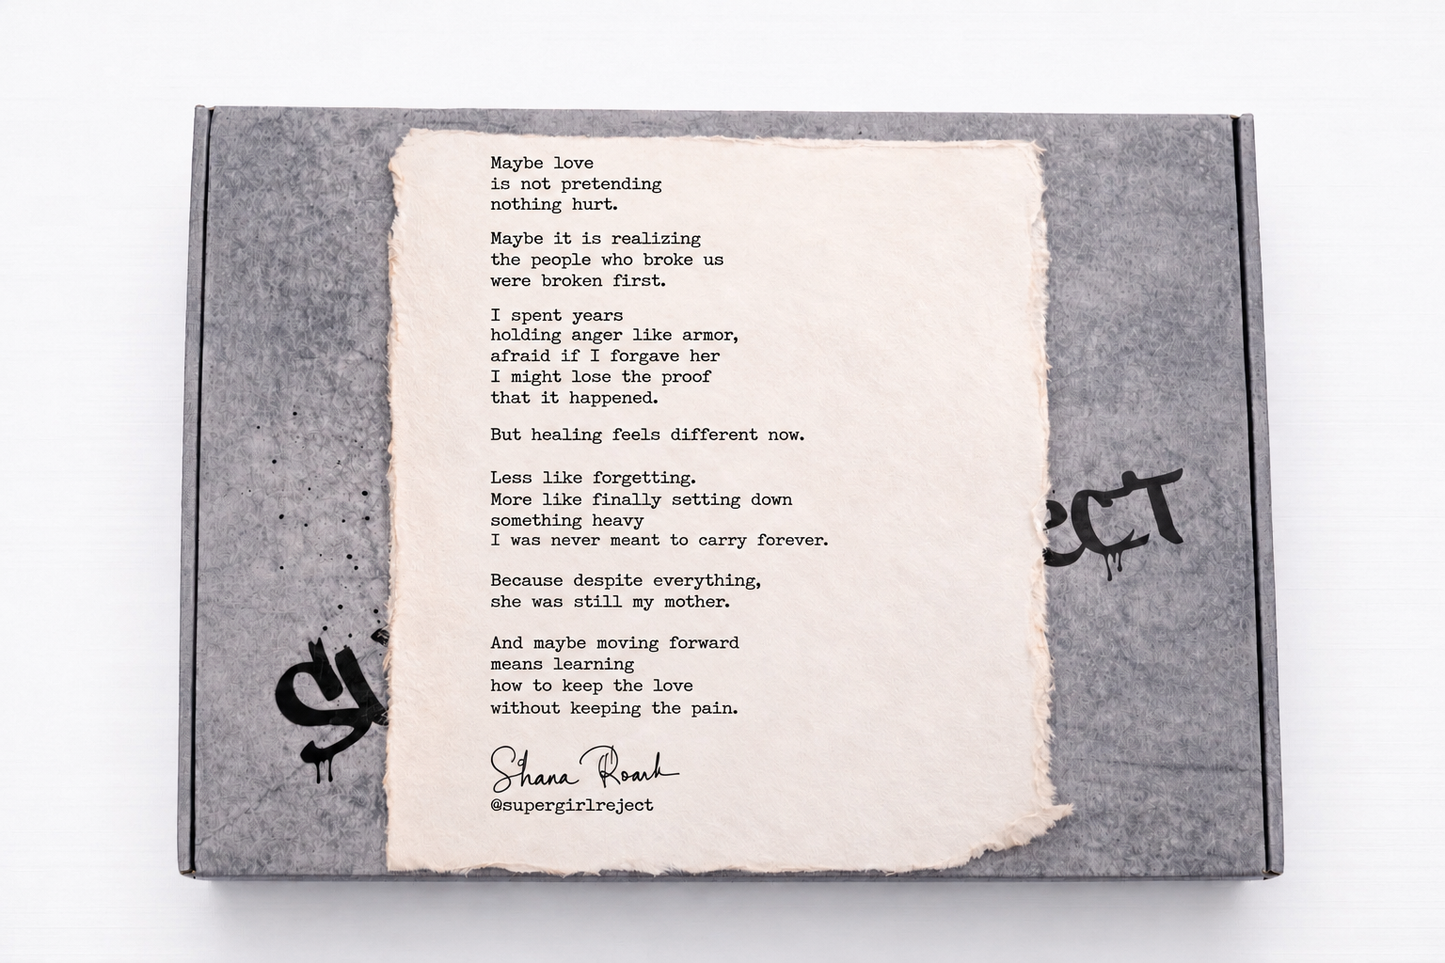 Maybe love
is not pretending
nothing hurt.
Maybe it is realizing
the people who broke us
were broken first.
I spent years
holding anger like armor,
afraid if I forgave her
I might lose the proof
that it happened.
But healing feels different now.
Less like forgetting.
More like finally setting down
something heavy
I was never meant to carry forever.
Because despite everything,
she was still my mother.
And maybe moving forward
means learning
how to keep the love
without keeping the pain.
Shana Roark
@supergirlreject